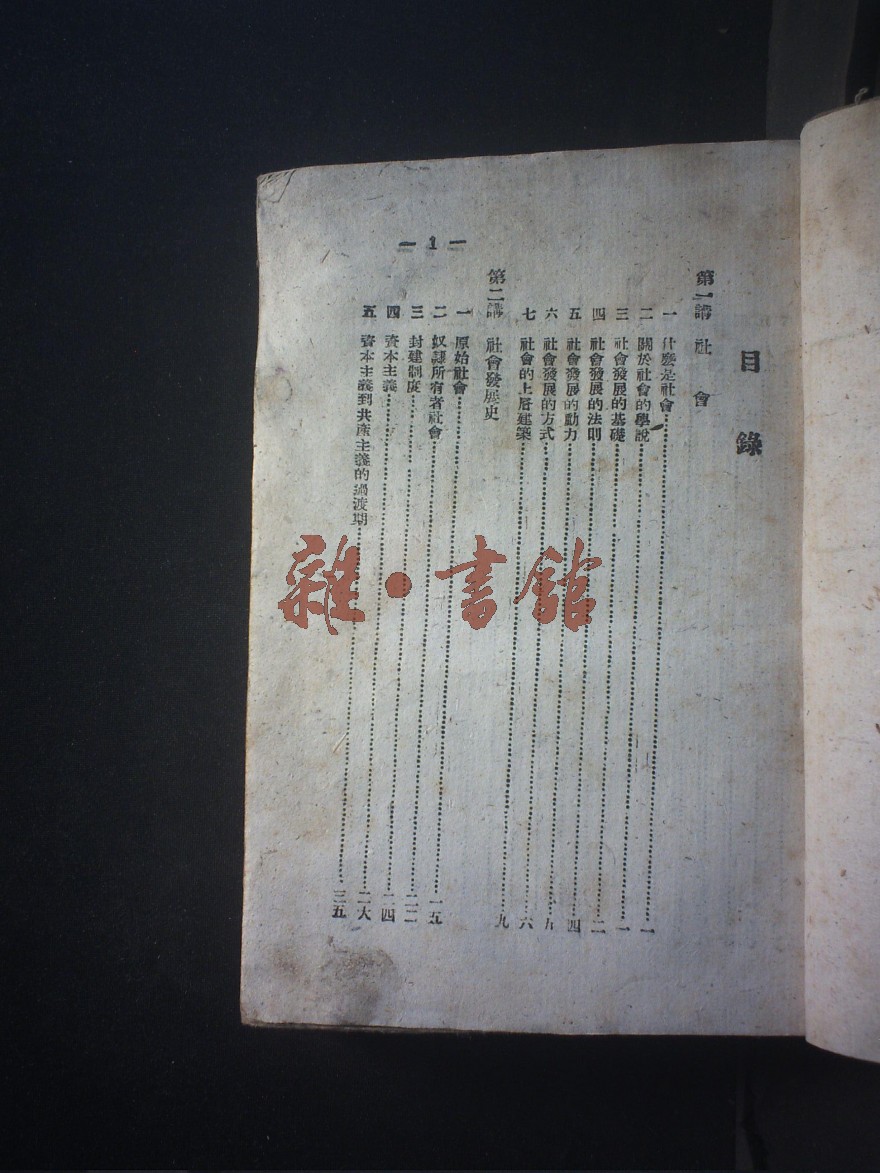 目錄
第一講 社會
一 什麼是社會……一
二 關於社會的學說……一
三 社會發展的基礎……二
四 社會發展的法則……四
五 社會發展的動力……五
六 社會發展的方式……六
七 社會的上層建築……九
第二講 社會發展史
一 原始社會……一五
二 奴隸所有者社會……二二
三 封建制度……二四
四 資本主義……二大
五 資本主義到共產主義的過渡期……三五
— 1 —
雜·書館